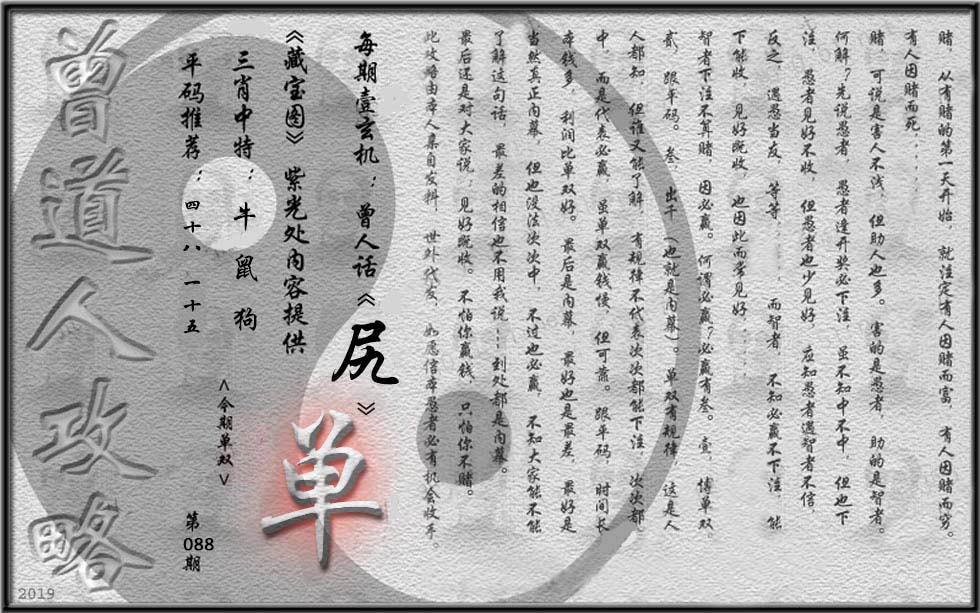 赌，从有赌的第一天开始，就注定有人因赌而富，有人因赌而穷。
有人因赌而死．．．．．
赌，可说是害人不浅，但助人也多。害的是愚者，助的是智者。
何解？先说愚者，愚者逢开奖必下注，虽不知中不中，但也下
注，愚者见好不收，但愚者也少见好，应知愚者遇智者不信，
反之，遇愁当友，等等．．．．．而智者，不知必赢不下注，能
下能收，见好既收，也因此而常见好．．．．
智者下注不算赌，因必赢。何谓必赢？必赢有叁。壹，博单双，
贰，跟平码。叁，出千（也就是内幕）。单双有规律，这是人
人都知，但谁又能了解，有规律不代表次次都能下注，次次都
中，而是代表必赢，虽单双赢钱慢，但可靠。跟平码，时间长，
本钱多，利润比单双好。最后是内幕，最好也是最差，最好是
当然真正内幕，但也没法次次中，不过也必赢，不知大家能不能
了解这句话，最差的相信也不用我说┅到处都是内幕。
最后还是对大家说；见好既收。不怕你赢钱，只怕你不赌。
此攻略由本人集自发料，世外代友，如愿信本愚者必有机会收手。
每期壹玄机：曾人话《尻》
《藏宝图》紫光处内容提供
单
三肖中特：牛 鼠 狗
<今期单双>
平码推荐：四十八 一十五
第088期
曾道人攻略
2019